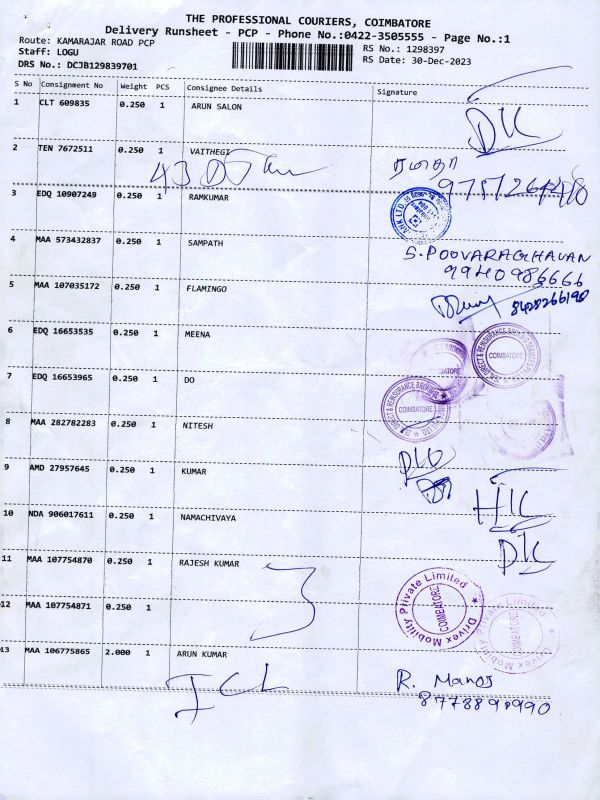 THE PROFESSIONAL COURIERS, COIMBATORE
Delivery Runsheet - PCP - Phone No.:0422-3505555 - Page No.:1
Route: KAMARAJAR ROAD PCP
RS No.: 1298397
Staff: LOGU
RS Date: 30-Dec-2023
DRS No.: DCJB129839701
S No Consignment No Weight PCS Consignee Details Signature
1 CLT 609835 0.250 1 ARUN SALON
DK
2 TEN 7672511 0.250 1 VAITHEGI
3 EDQ 10907249 0.250 1 RAMKUMAR
4 MAA 573432837 0.250 1 SAMPATH
S.POOVARAGHAVAN
9940986666
5 MAA 107035172 0.250 1 FLAMINGO
8428266190
6 EDQ 16653535 0.250 1 MEENA
COIMBATORE
7 EDQ 16653965 0.250 1 DO
COIMBATORE
8 MAA 282782283 0.250 1 NITESH
9 AMD 27957645 0.250 1 KUMAR
10 NDA 906017611 0.250 1 NAMACHIVAYA
DK
11 MAA 107754870 0.250 1 RAJESH KUMAR
Drivex Mobility Private Limited
COIMBATORE
12 MAA 107754871 0.250 1
13 MAA 106775865 2.000 1 ARUN KUMAR
R. Manoj